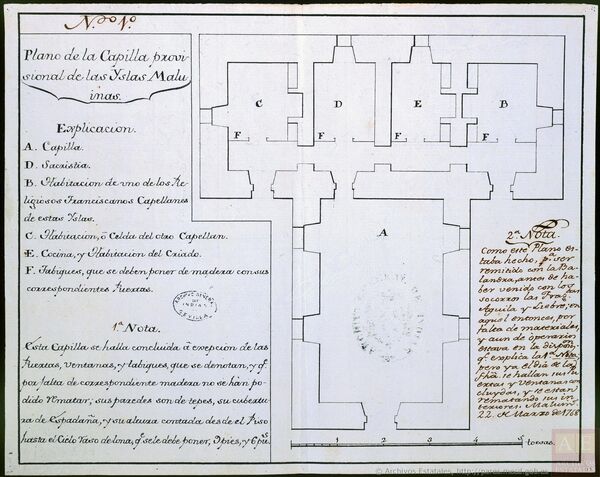 N.do 1.º
Plano de la Capilla provi-
sional de las Yslas Malu-
inas.
Explicacion.
A. Capilla.
D. Sacristia.
B. Habitacion de vno de los Re-
ligiosos Franciscanos Capellanes
de estas Yslas.
C. Habitacion, ò Celda del otro Capellan.
E. Cocina, y Habitacion del Criado.
F. Tabiques, que se deben poner de madera con sus
correspondientes Puertas.
1.ª Nota.
Esta Capilla se halla concluida à excepcion de las
Puertas, ventanas, y tabiques, que se denotan, y q.e
por falta de correspondiente madera no se han po-
dido rematar; sus paredes son de tepes, su cubertu-
ra de Espadaña, y su altura contada desde el Piso
hasta el Cielo raso de lona, q.e se le debe poner, 9 pies, y 6 pul.s
C
D
E
B
F
F
F
F
A
2.ª Nota.
Como este Plano es-
taba hecho, p.a ser
remitido con la Ba-
landra, antes de ha-
ber venido con los
socorros las Frag.tas
Aguila y Liebre, en
aquel entonces, por
falta de materiales,
y aun de operarios
estava en la dispon.on
q.e explica la 1.a Nota
pero ya el dia de la
fha. se hallan sus Pu-
ertas y Ventanas con-
cluydas, y se estan
rematando sus in-
teriores. Maluin.s
22. de Marzo de 1768
1 2 3 4 5 toesas.
ARCHIVO GENERAL
DE
INDIAS
SEVILLA
© Archivos Estatales,